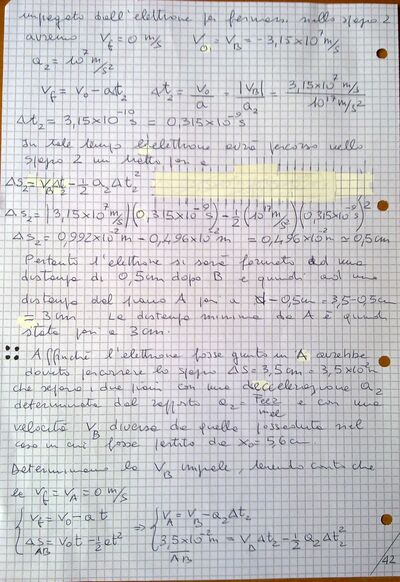 impiegato dall'elettrone per fermarsi nello spazio 2
avremo V_f = 0 m/s V_01 = V_B = -3,15×10^7 m/s
a_2 = 10^17 m/s^2
V_f = V_0 - at_2 Δt_2 = V_0/a = |V_B|/a_2 = 3,15×10^7 m/s / 10^17 m/s^2
Δt_2 = 3,15×10^-10 s = 0,315×10^-9 s
In tale tempo l'elettrone avrà percorso nello
spazio 2 un tratto pari a
Δs_2 = V_B Δt_2 - 1/2 a_2 Δt_2^2
Δs_2 = |3,15×10^7 m/s| (0,315×10^-9 s) - 1/2 (10^17 m/s^2) (0,315×10^-9 s)^2
Δs_2 = 0,992×10^-2 m - 0,496×10^-2 m = 0,496×10^-2 m ≃ 0,5 cm
Pertanto l'elettrone si sarà fermato ad una
distanza di 0,5 cm dopo B e quindi ad una
distanza dal piano A pari a d - 0,5 cm = 3,5 - 0,5 cm
= 3 cm La distanza minima da A è quindi
stata pari a 3 cm.
Affinché l'elettrone fosse giunto in A avrebbe
dovuto percorrere lo spazio Δs = 3,5 cm = 3,5×10^-2 m
che separa i due piani con una decelerazione a_2
determinata dal rapporto a_2 = Fe2/mel e con una
velocità V_B diversa da quella posseduta nel
caso in cui fosse partito da x_0 = 5,6 cm.
Determiniamo la V_B iniziale, tenendo conto che
la V_f = V_A = 0 m/s
{ V_f = V_0 - at ⇒ { V_A = V_B - a_2 Δt_2
{ Δs_AB = V_0 t - 1/2 at^2 { 3,5×10^-2 m = V_B Δt_2 - 1/2 a_2 Δt_2^2
AB
/42